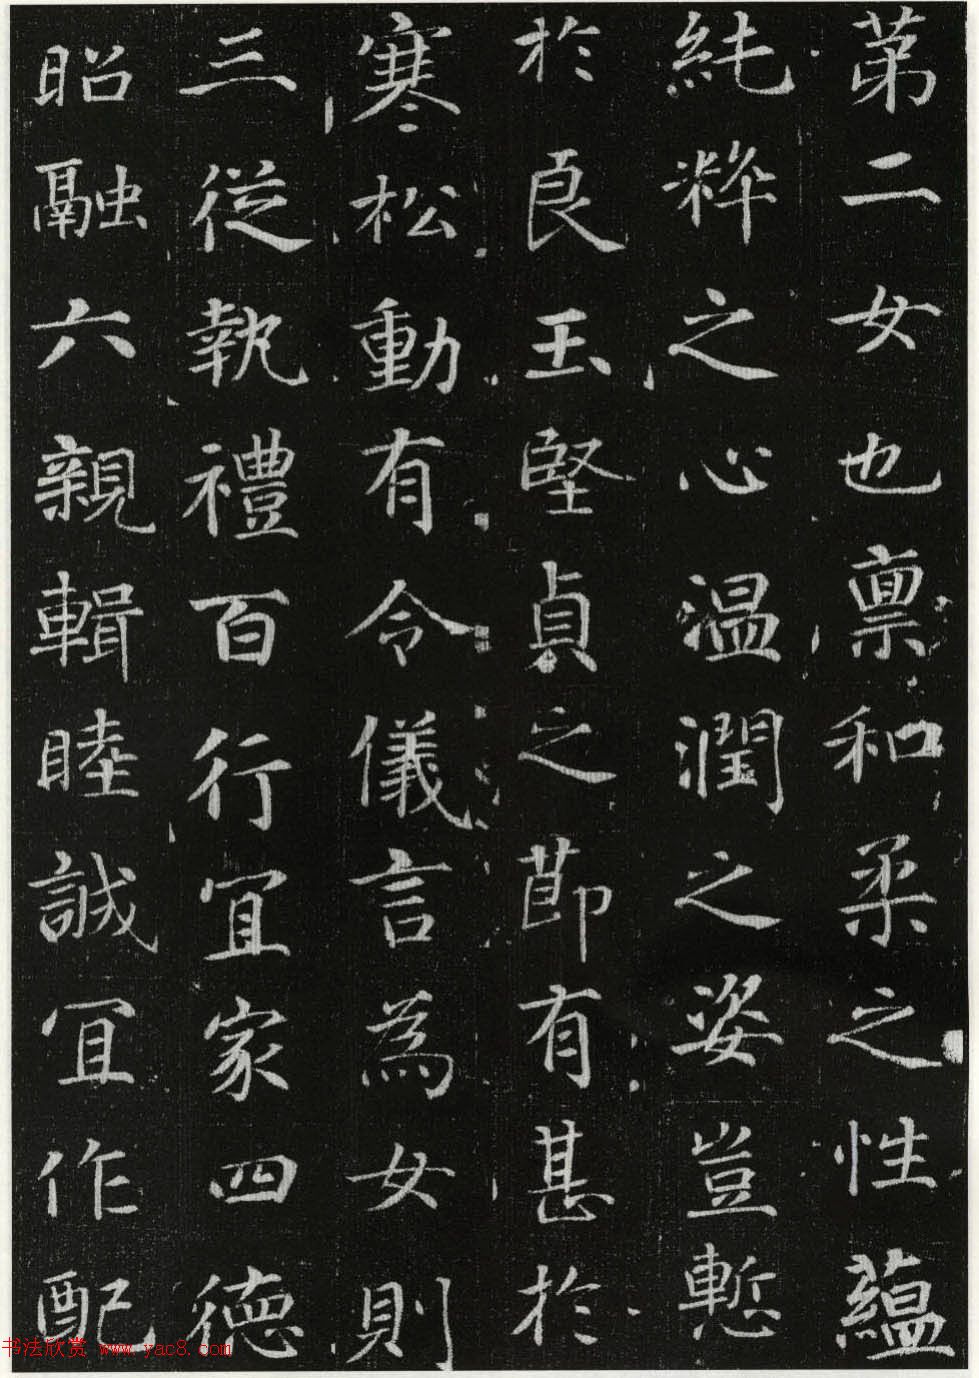 苐二女也禀和柔之性蘊
純粹之心温潤之姿豈慙
於良玉堅貞之莭有甚於
寒松動有令儀言為女則
三從執禮百行宜家四德
昭融六親輯睦誠宜作配
书法欣赏 www.yac8.com